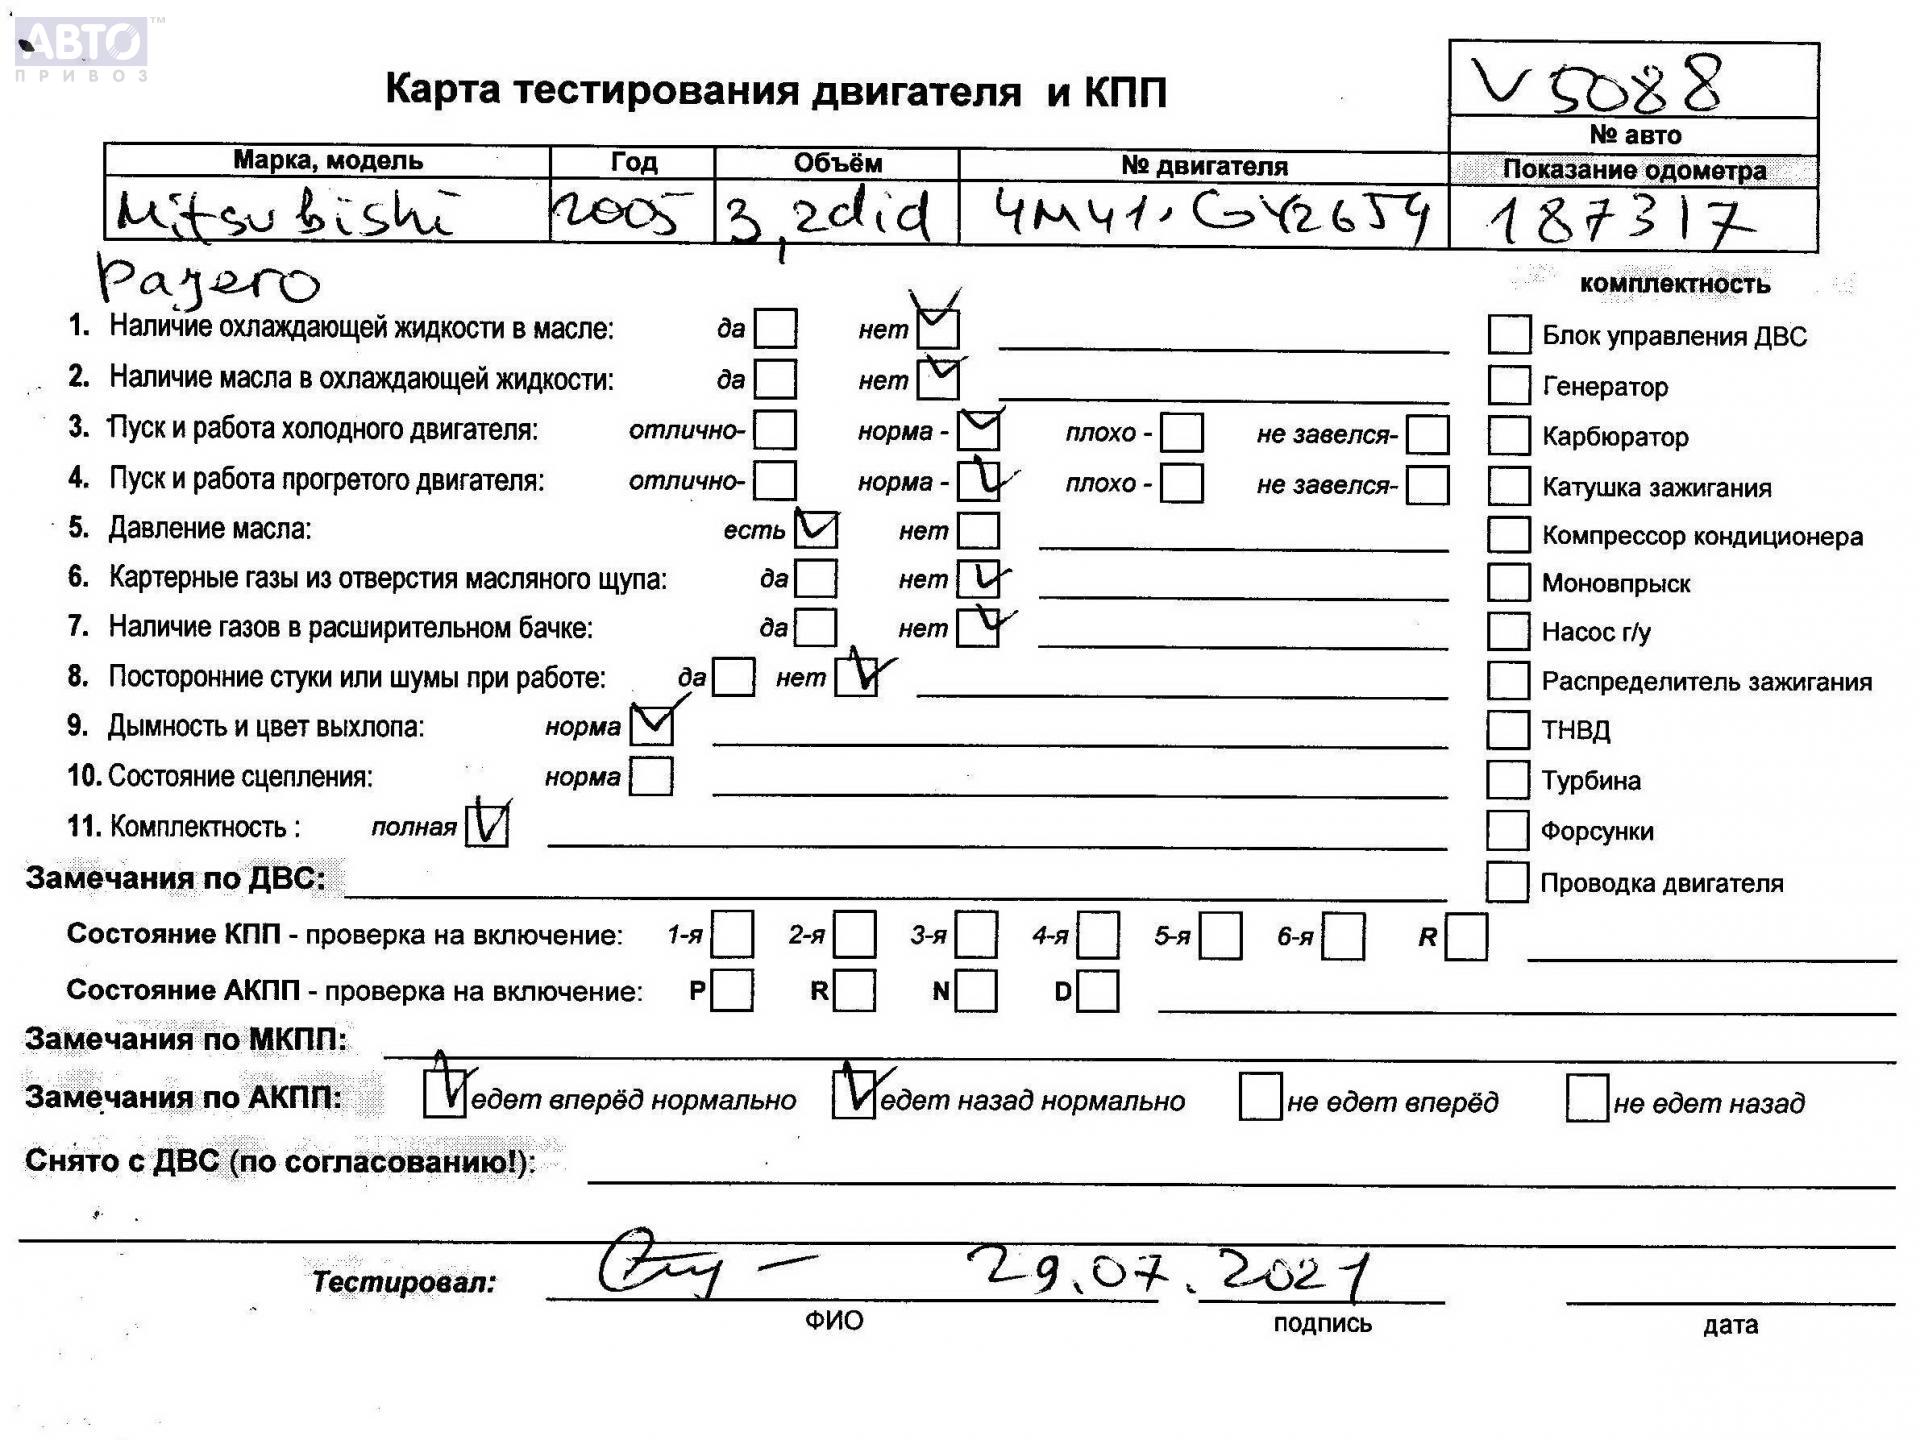 АВТО™
ПРИВОЗ
V5088
Карта тестирования двигателя и КПП
№ авто
Марка, модель Год Объём № двигателя Показание одометра
Mitsubishi 2005 3,2did 4M41. GY2654 187317
Pajero
комплектность
1. Наличие охлаждающей жидкости в масле: да нет
Блок управления ДВС
2. Наличие масла в охлаждающей жидкости: да нет
Генератор
3. Пуск и работа холодного двигателя: отлично- норма - плохо - не завелся-
Карбюратор
4. Пуск и работа прогретого двигателя: отлично- норма - плохо - не завелся-
Катушка зажигания
5. Давление масла: есть нет
Компрессор кондиционера
6. Картерные газы из отверстия масляного щупа: да нет
Моновпрыск
7. Наличие газов в расширительном бачке: да нет
Насос г/у
8. Посторонние стуки или шумы при работе: да нет
Распределитель зажигания
9. Дымность и цвет выхлопа: норма
ТНВД
10. Состояние сцепления: норма
Турбина
11. Комплектность : полная
Форсунки
Замечания по ДВС:
Проводка двигателя
Состояние КПП - проверка на включение: 1-я 2-я 3-я 4-я 5-я 6-я R
Состояние АКПП - проверка на включение: P R N D
Замечания по МКПП:
Замечания по АКПП: едет вперёд нормально едет назад нормально не едет вперёд не едет назад
Снято с ДВС (по согласованию!):
Тестировал: 29.07.2021
ФИО подпись дата